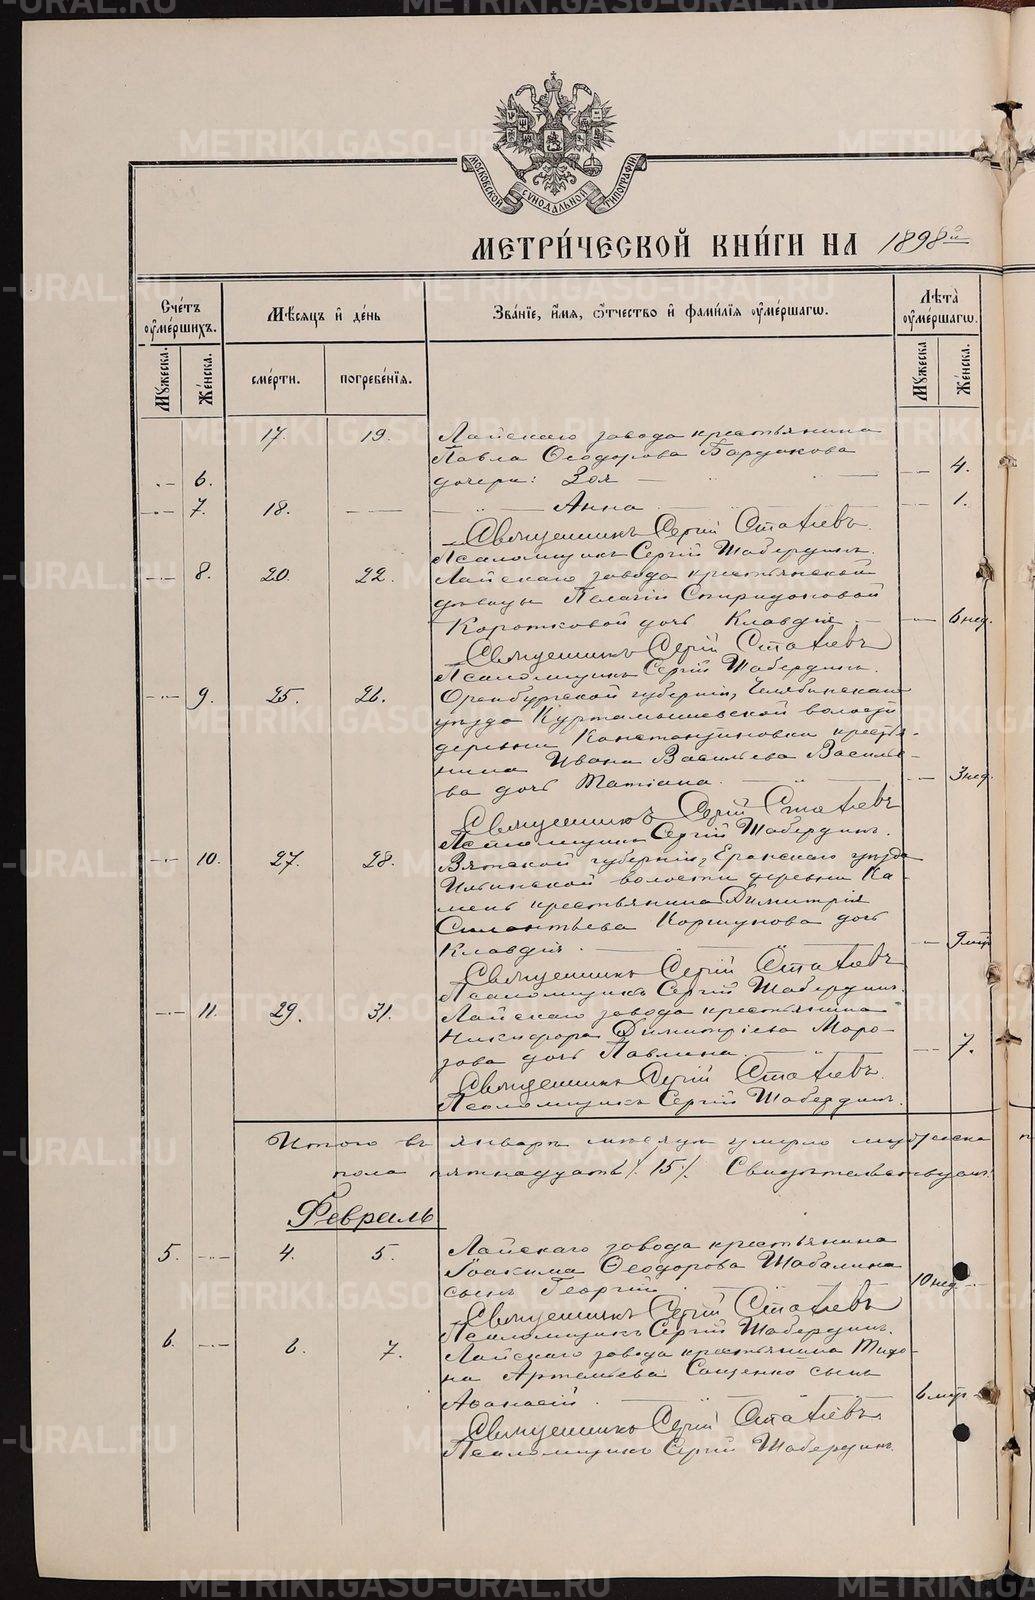 METRIKI.GASO-URAL.RU
МОСКОВСКОЙ СѴНОДАЛЬНОЙ ТИПОГРАФІИ
МЕТРИ́ЧЕСКОЙ КНИ́ГИ НА 1898й
Сче́тъ ᲂу҆ме́ршихъ.
Мѣ́сяцъ и҆ де́нь
Зва́нїе, и҆́мя, ѻ҆́тчество и҆ фами́лїя ᲂу҆ме́ршагѡ.
Лѣта̀ ᲂу҆ме́ршагѡ.
Мꙋ́жеска.
Же́нска.
сме́рти.
погребе́нїя.
Мꙋ́жеска
Же́нска.
17. 19. Лайскаго завода крестьянина
Павла Ѳеодорова Бардюкова
6. дочери: Зоя 4.
7. 18. Анна 1.
Священникъ Сергій Стаѳіевъ
Псаломщикъ Сергій Шабердинъ.
8. 20. 22. Лайскаго завода крестьянской
дѣвицы Пелагіи Спиридоновой
Коротковой дочь Клавдія 6 нед.
Священникъ Сергій Стаѳіевъ
Псаломщикъ Сергій Шабердинъ.
9. 25. 26. Оренбургской губерніи, Челябинскаго
уѣзда Куртамышевской волости
деревни Константиновки крестья-
нина Ивана Васильева Василье-
ва дочь Татіана. 3 нед.
Священникъ Сергій Стаѳіевъ
Псаломщикъ Сергій Шабердинъ.
10. 27. 28. Вятской губерніи, Еранскаго уѣзда
Ильинской волости деревни Ка-
мень крестьянина Димитрія
Силантьева Коршунова дочь
Клавдія. 9 мѣс
Священникъ Сергій Стаѳіевъ
Псаломщикъ Сергій Шабердинъ.
11. 29. 31. Лайскаго завода крестьянина
Никифора Димитріева Моро-
зова дочь Павлина 7.
Священникъ Сергій Стаѳіевъ
Псаломщикъ Сергій Шабердинъ.
Итого въ январѣ мѣсяцѣ умерло мужеска
пола пятнадцать /. 15 /. Свидѣтельствуютъ:
Февраль
5. 4. 5. Лайскаго завода крестьянина
Іоакима Ѳеодорова Шабалина
сынъ Георгій 10 нед.
Священникъ Сергій Стаѳіевъ
Псаломщикъ Сергій Шабердинъ.
6. 6. 7. Лайскаго завода крестьянина Тихо-
на Артемьева Сащенко сынъ
Аѳанасій 6 мѣс.
Священникъ Сергій Стаѳіевъ
Псаломщикъ Сергій Шабердинъ.